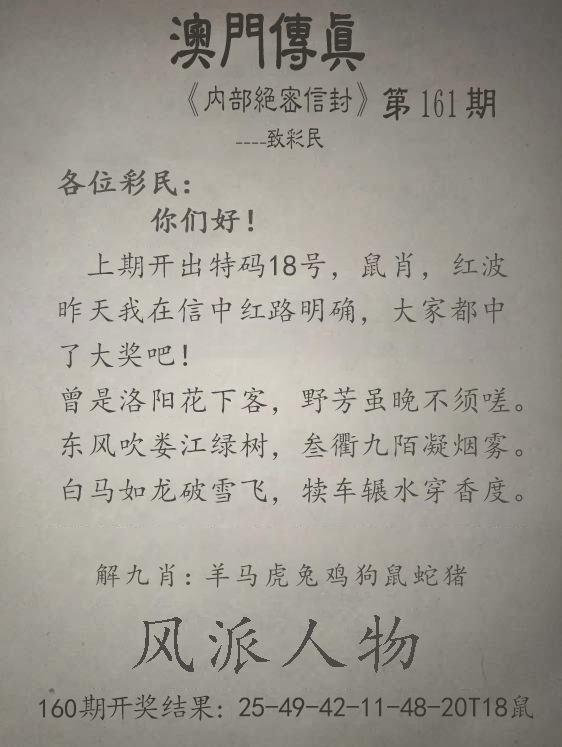 澳門傳真
《内部絕密信封》第161期
----致彩民
各位彩民：
你们好！
上期开出特码18号，鼠肖，红波
昨天我在信中红路明确，大家都中
了大奖吧！
曾是洛阳花下客，野芳虽晚不须嗟。
东风吹娄江绿树，叁衢九陌凝烟雾。
白马如龙破雪飞，犊车辗水穿香度。
解九肖：羊马虎兔鸡狗鼠蛇猪
风派人物
160期开奖结果：25-49-42-11-48-20T18鼠